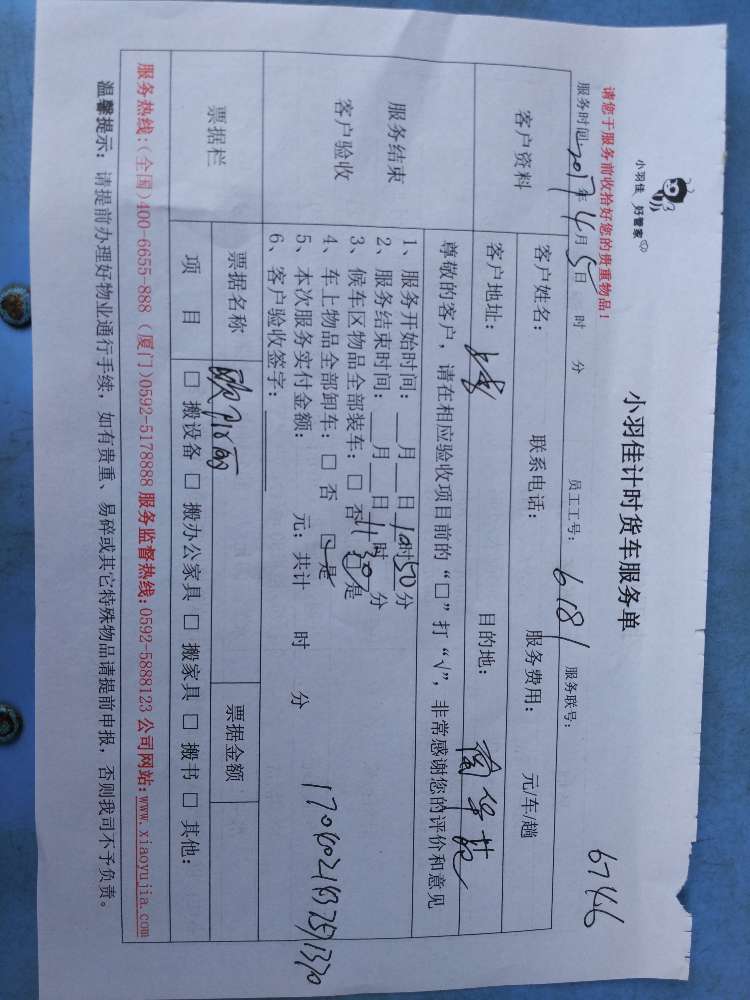 小羽佳 好管家
小羽佳计时货车服务单
6746
请您于服务前收拾好您的贵重物品!
服务时间2017年4月5日 时 分 员工工号: 6181 服务联号:
客户资料
客户姓名: 联系电话: 服务费用: 元/车/趟
客户地址: 目的地:
服务结束
客户验收
尊敬的客户,请在相应验收项目前的“□”打“√”,非常感谢您的评价和意见
1、服务开始时间:__月__日10时50分
2、服务结束时间:__月__日11时30分
3、候车区物品全部装车:□ 否 □ 是
4、车上物品全部卸车:□ 否 □ 是
5、本次服务实付金额: 元;共计 时 分
6、客户验收签字:______
票据栏
票据名称 票据金额
项 目 □ 搬设备 □ 搬办公家具 □ 搬家具 □ 搬书 □ 其他:
服务热线:(全国)400-6655-888 (厦门)0592-5178888 服务监督热线:0592-5888123 公司网站:www.xiaoyujia.com
温馨提示:请提前办理好物业通行手续,如有贵重、易碎或其它特殊物品请提前申报,否则我司不予负责。